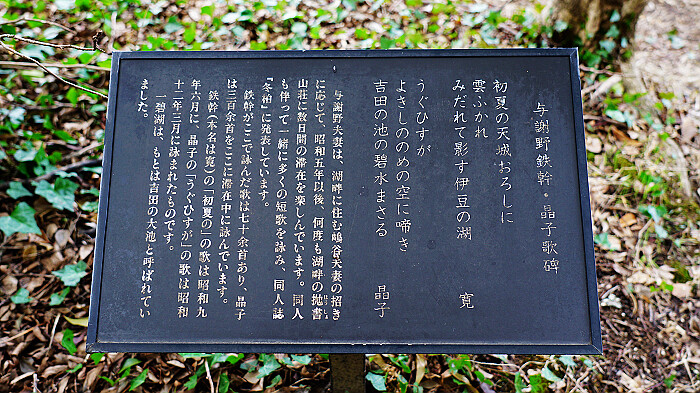 与謝野鉄幹・晶子歌碑
初夏の天城おろしに
雲ふかれ
みだれて影す伊豆の湖
寛
うぐひすが
よきしののめの空に啼き
吉田の池の碧水まさる
晶子
与謝野夫妻は、湖畔に住む嶋谷夫妻の招き
に応じて、昭和五年以後、何度も湖畔の抛書
山荘に数日間の滞在を楽しんでいます。同人
も伴って一緒に多くの短歌を詠み、同人誌
『冬柏』に発表しています。
鉄幹がここで詠んだ歌は七十余首あり、晶子
は三百余首をここに滞在中に詠んでいます。
鉄幹(本名は寛)の「初夏の」の歌は昭和九
年六月に、晶子の「うぐひすが」の歌は昭和
十二年三月に詠まれたものです。
一碧湖は、もとは吉田の大池と呼ばれてい
ました。